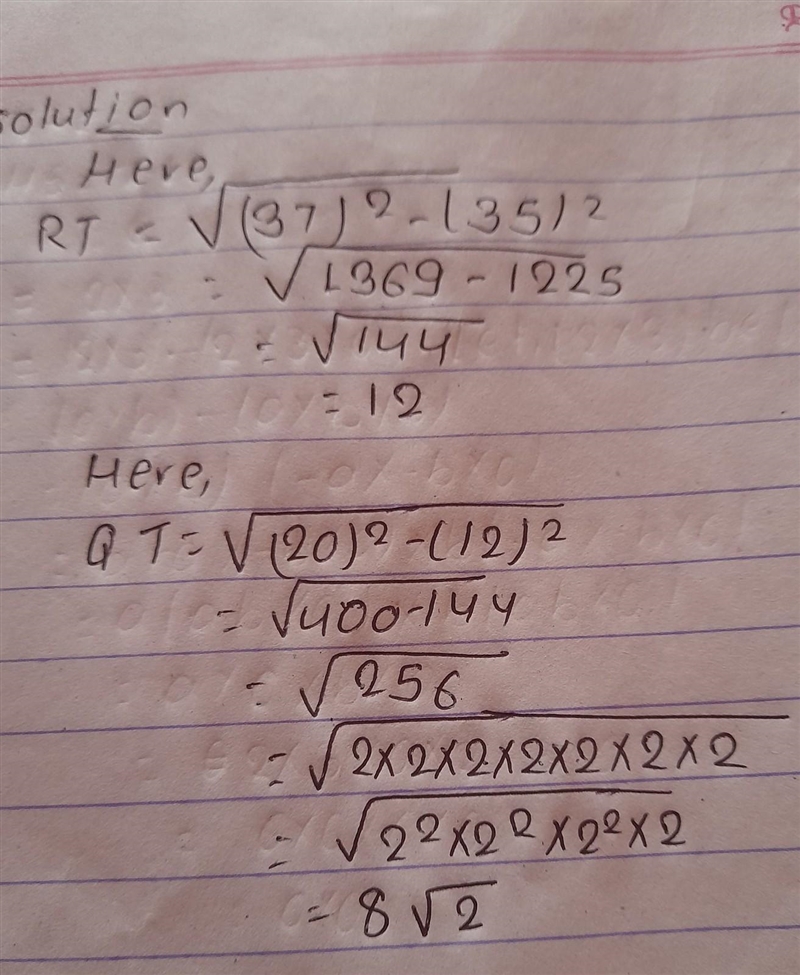 solution
Here,
RT = √(37)² - (35)²
= √1369 - 1225
= √144
= 12
Here,
QT = √(20)² - (12)²
= √400-144
= √256
= √2×2×2×2×2×2×2
= √2²×2²×2²×2
= 8√2